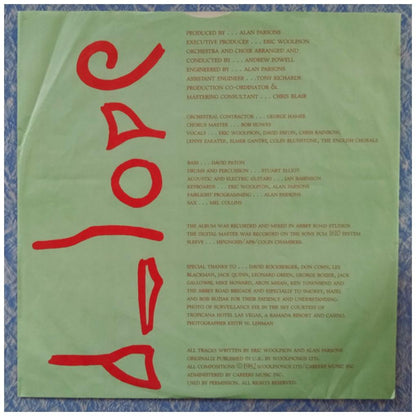 PRODUCED BY . . . ALAN PARSONS
EXECUTIVE PRODUCER . . . ERIC WOOLFSON
ORCHESTRA AND CHOIR ARRANGED AND
CONDUCTED BY . . . ANDREW POWELL
ENGINEERED BY . . . ALAN PARSONS
ASSISTANT ENGINEER . . . TONY RICHARDS
PRODUCTION CO-ORDINATOR &
MASTERING CONSULTANT . . . CHRIS BLAIR
ORCHESTRAL CONTRACTOR . . . GEORGE HAMER
CHORUS MASTER . . . BOB HOWES
VOCALS . . . ERIC WOOLFSON, DAVID PATON, CHRIS RAINBOW,
LENNY ZAKATEK, ELMER GANTRY, COLIN BLUNSTONE, THE ENGLISH CHORALE
BASS . . . DAVID PATON
DRUMS AND PERCUSSION . . . STUART ELLIOTT
ACOUSTIC AND ELECTRIC GUITARS . . . IAN BAIRNSON
KEYBOARDS . . . ERIC WOOLFSON, ALAN PARSONS
FAIRLIGHT PROGRAMMING . . . ALAN PARSONS
SAX . . . MEL COLLINS
THE ALBUM WAS RECORDED AND MIXED IN ABBEY ROAD STUDIOS
THE DIGITAL MASTER WAS RECORDED ON THE SONY PCM 1610 SYSTEM
SLEEVE . . . HIPGNOSIS/APB/COLIN CHAMBERS.
SPECIAL THANKS TO . . . DAVID ROCKBERGER, DON COWN, LES
BLACKMAN, JACK QUINN, LEONARD GREEN, GEORGE BODER, JACK
GALLOWAY, MIKE HOWARD, ARON MIDAN, KEN TOWNSEND AND
THE ABBEY ROAD BRIGADE AND ESPECIALLY TO SMOKEY, HAZEL
AND BOB BUZIAK FOR THEIR PATIENCE AND UNDERSTANDING
PHOTO OF SURVEILLANCE EYE IN THE SKY COURTESY OF
TROPICANA HOTEL LAS VEGAS, A RAMADA RESORT AND CASINO.
PHOTOGRAPHER KEITH W. LEHMAN
ALL TRACKS WRITTEN BY ERIC WOOLFSON AND ALAN PARSONS
ORIGINALLY PUBLISHED IN U.K. BY WOOLFSONGS LTD.
ALL COMPOSITIONS © 1982 WOOLFSONGS LTD/CAREERS MUSIC INC.
ADMINISTERED BY CAREERS MUSIC INC.
USED BY PERMISSION. ALL RIGHTS RESERVED.